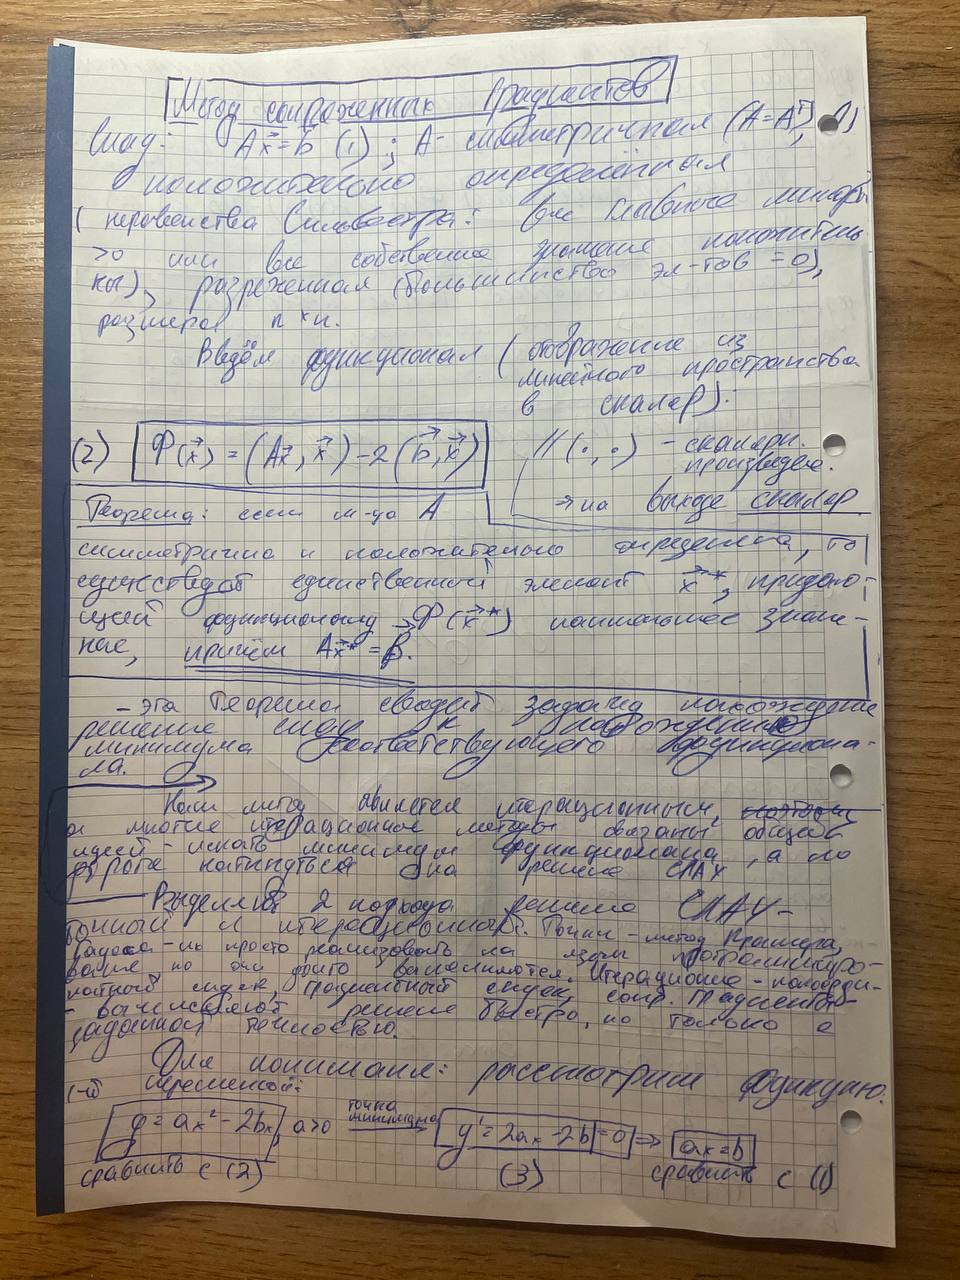 Метод сопряженных градиентов
СЛАУ: Ax⃗=b⃗ (1) ; A - симметричная (A=Aᵀ),
положительно определённая
( неравенства Сильвестра: все главные миноры
>0 или все собственные значения положитель
ны), разреженная (большинство эл-тов =0),
размера n×n.
Введём функционал ( отображение из
линейного пространства
в скаляр):
(2) Φ(x⃗) = (Ax⃗, x⃗) - 2(b⃗, x⃗) // (·,·) - скалярн.
произведен.
→ на выходе скаляр
Теорема: если м-ца A
симметрична и положительно определена, то
существует единственный элемент x⃗*, придаю-
щий функционалу Φ(x⃗*) наименьшее значе-
ние, причём Ax⃗* = b⃗.
- эта теорема сводит задачу нахождения
решения СЛАУ к нахождению
минимума соответствующего функциона-
ла.
Наш метод является итерационным,
а многие итерационные методы связаны общей
идеей - искать минимум функционала, а по
дороге наткнуться на решение СЛАУ
Выделяют 2 подхода решения СЛАУ -
точный и итерационный. Точн - метод Крамера,
Гаусса - их просто реализовать на языке программиро-
вания но они долго выполняются. Итерационные - покоорди-
натный спуск, градиентный спуск, сопр. градиентов -
- вычисляют решение быстро, но только с
заданной точностью.
Для понимания: рассмотрим функцию
1-й переменной:
y = ax² - 2bx, a>0 точка минимума → y' = 2ax - 2b = 0 ⇒ ax=b
сравнить с (2) (3) сравнить с (1)